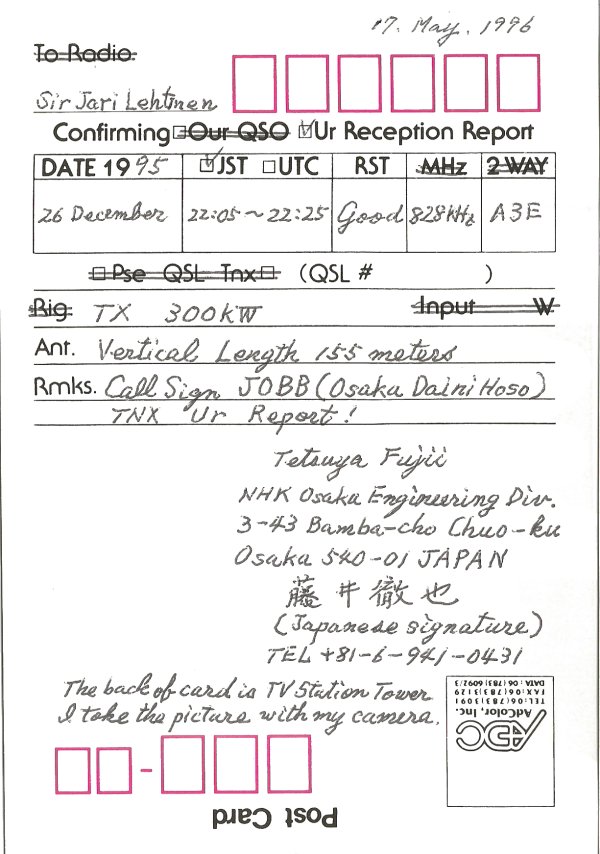 17. May. 1996
To Radio
Sir Jari Lehtinen
Confirming □Our QSO ☑Ur Reception Report
DATE 1995 ☑JST □UTC RST MHz 2 WAY
26 December 22:05~22:25 Good 828kHz A3E
□Pse QSL Tnx□ (QSL # )
Rig TX 300KW Input W
Ant. Vertical Length 155 meters
Rmks. Call Sign JOBB (Osaka Daini Hoso)
TNX Ur Report!
Tetsuya Fujii
NHK Osaka Engineering Div.
3-43 Bamba-cho Chuo-ku
Osaka 540-01 JAPAN
藤井徹也
(Japanese signature)
TEL +81-6-941-0431
The back of card is TV Station Tower
I take the picture with my camera.
Post Card
ADC
AdColor, Inc.
TEL:06(783)3091
FAX:06(783)3129
DATA:06(783)6092/3